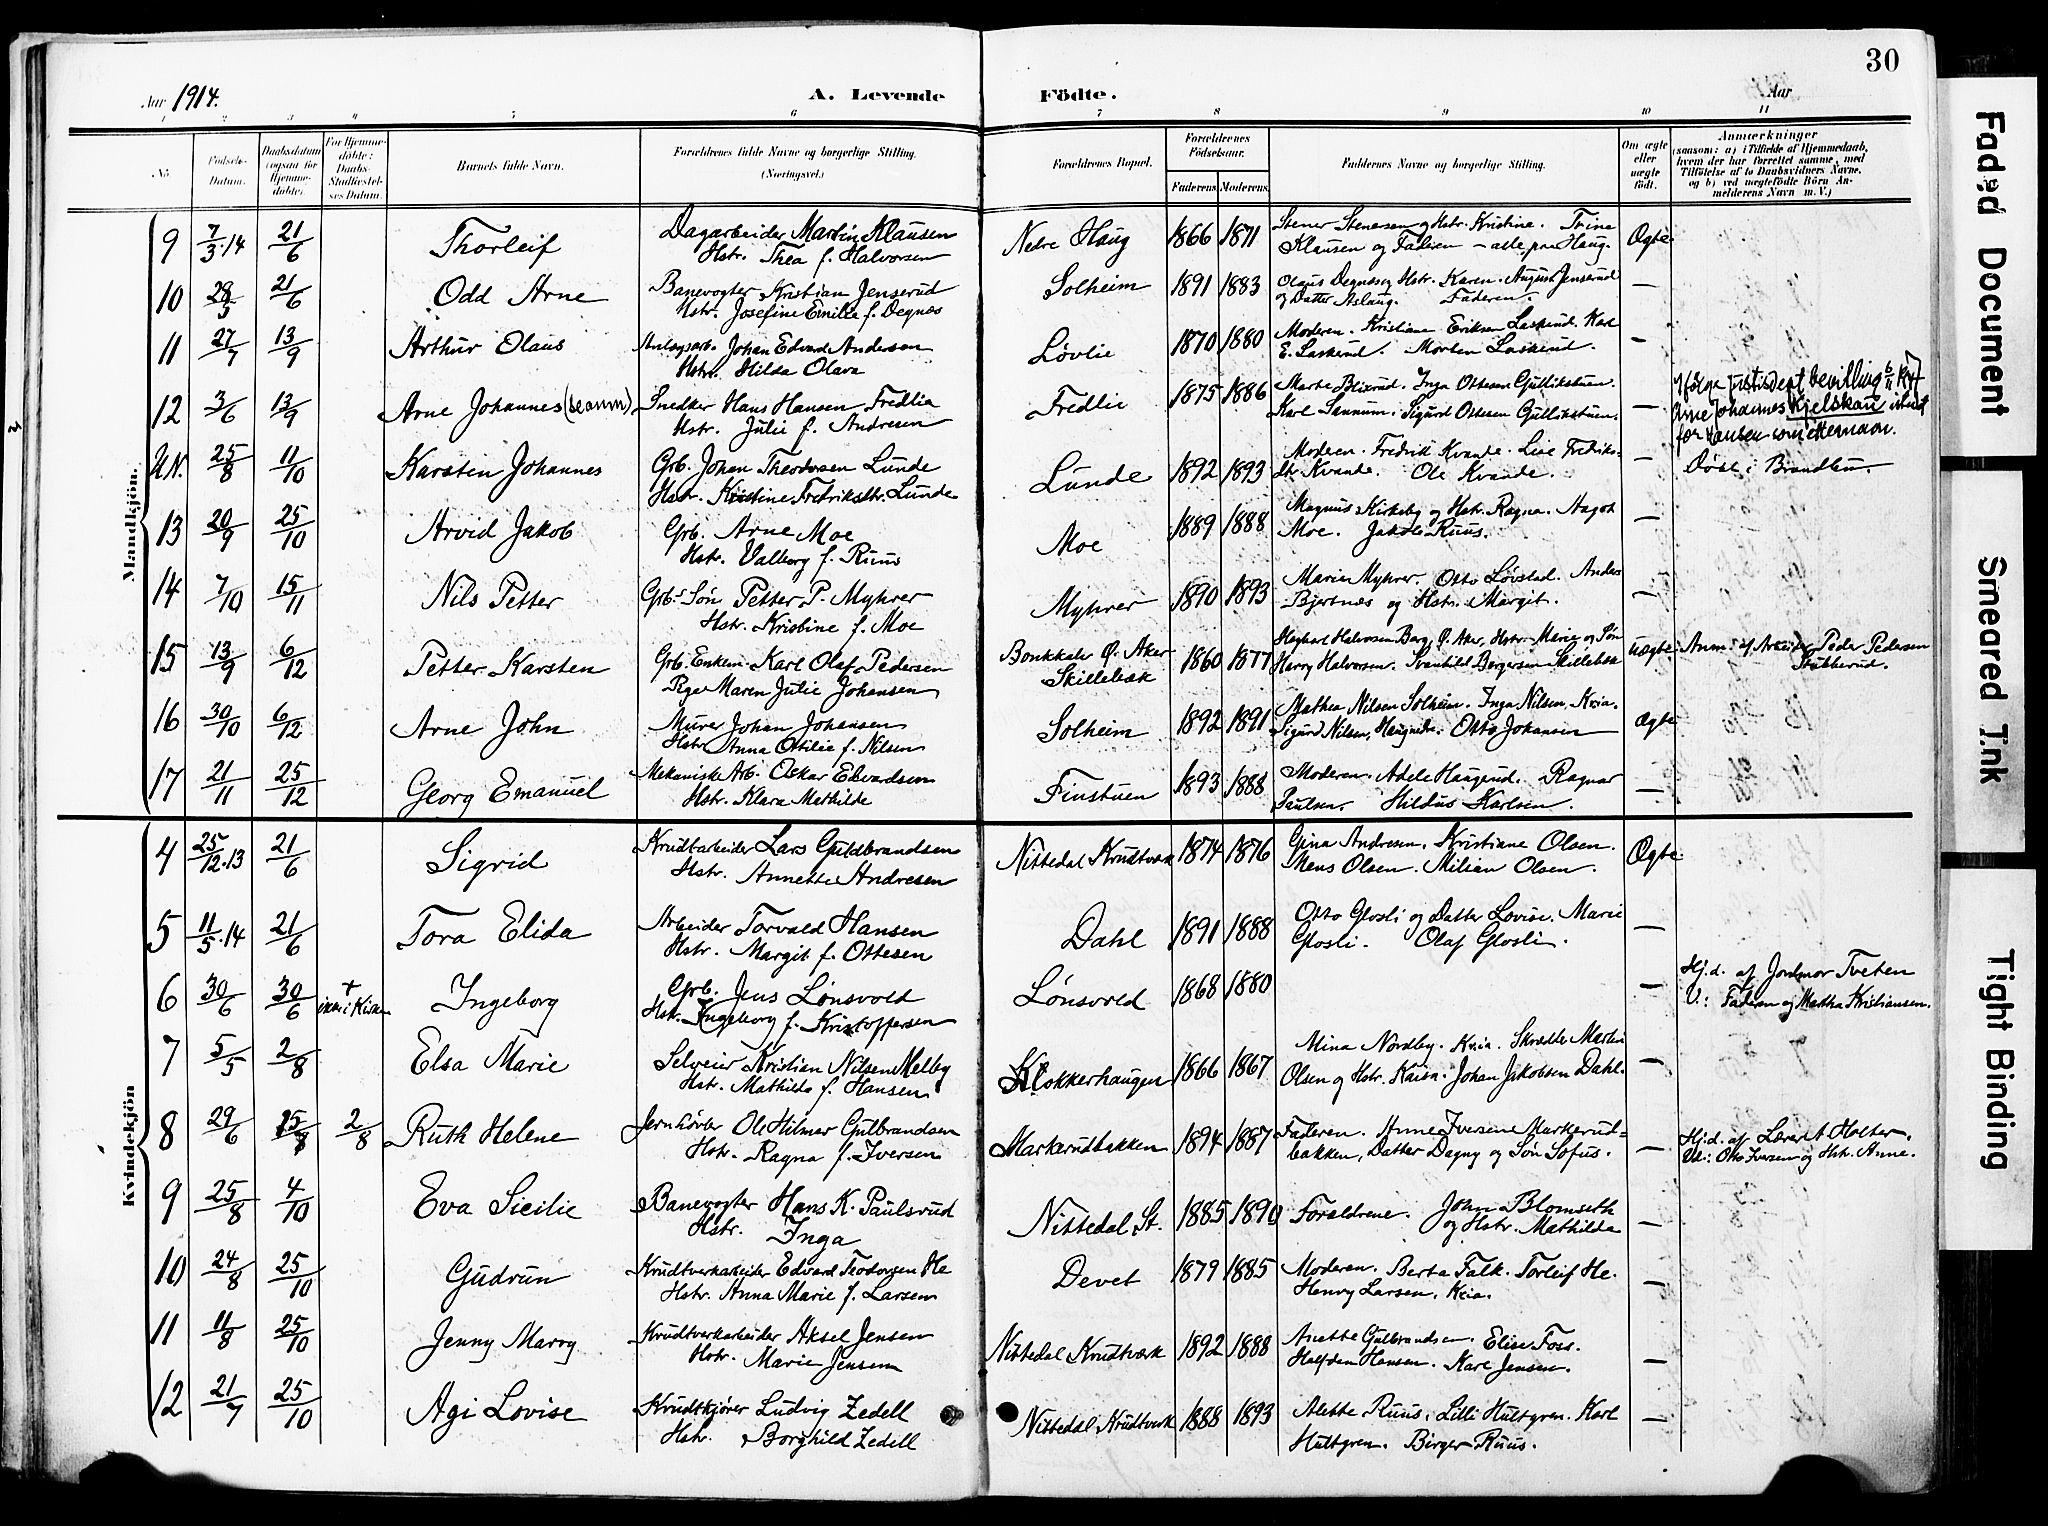 30
Aar 1914.
A. Levende Födte.
Aar
1 2 3 4 5 6 7 8 9 10 11
No.
Fødsels-Datum.
Daabsdatum (ogsaa for Hjemme-døbte).
For Hjemme-døbte: Daabs-Stadfæstel-ses Datum.
Barnets fulde Navn.
Forældrenes fulde Navne og borgerlige Stilling. (Næringsvei.)
Forældrenes Bopæl.
Forældrenes Födselsaar.
Faderens. Moderens.
Faddernes Navne og borgerlige Stilling.
Om ægte eller uægte födt.
Anmærkninger
(saasom: a) i Tilfælde af Hjemmedaab, hvem der har forrettet samme, med Tilföielse af to Daabsvidners Navne, og b) ved uægtefödte Börn An-melderens Navn m. V.)
Mandkjön.
9 7/3.14 21/6 Thorleif Dagarbeider Martin Klausen Netre Haug 1866 1871 Stener Stenersen og Hstr. Kristine. Trine Ægte
Hstr. Thea f. Halvorsen Klausen og Faderen – alle paa Haug.
10 21/6 Odd Arne Banevogter Kristian Jenserud Solheim 1891 1883 Olaus Degnes og Hstr. Karen. August Jenserud —
Hstr. Josefine Emilie f. Degnes og Datter Aslaug. Faderen.
11 27/7 13/9 Arthur Olaus Anlægsarb. Johan Edvard Andersen Løvlie 1870 1880 Moderen. Kristiane Eriksen Laskerud. Karl —
Hstr. Hilda Olava E. Laskerud. Morten Laskerud.
12 3/6 13/9 Arne Johannes (se anm) Snedker Hans Hansen Fredlie Fredlie 1875 1886 Marte Blixrud. Inga Ottesen Gullikstuen. — Ifølge Justisdept bevilling
Hstr. Julie f. Andresen Karl Sannum. Sigurd Ottesen Gullikstuen. Arne Johannes Kjelskau istedet
for Hansen som etternavn.
U.N. 25/8 11/10 Karsten Johannes Grb. Johan Theodorsen Lunde Lunde 1892 1893 Moderen. Fredrik Kvande. Line Fredriks- — Døbt i Brandbu.
Hstr. Kristine Fredriksdtr. Lunde dtr. Kvande. Ole Kvande.
13 20/9 25/10 Arvid Jakob Grb. Arne Moe Moe 1889 1888 Magnus Kirkeby og Hstr. Ragna. Aagot —
Hstr. Valborg f. Ruus Moe. Jakob Ruus.
14 7/10 15/11 Nils Petter Grb.s Søn Petter P. Myhrer Myhrer 1890 1893 Marie Myhrer. Otto Løvstad. Anders —
Hstr. Kristine f. Moe Bjertnæs og Hstr. Margit.
15 13/9 6/12 Petter Karsten Grb. Enkem. Karl Olaf Pedersen Ø. Aker 1860 1877 Halvorsen Berg, Ø. Aker, Hstr. Marie og Søn uægte Anm. af Peder Pedersen
Pige Maren Julie Johansen Skillebæk Harry Halvorsen. Bergersen Skillebæk Stubberud.
16 30/10 6/12 Arne John Murer Johan Johansen Solheim 1892 1891 Mathea Nilsen Solheim. Inga Nilsen, Kria. Ægte
Hstr. Anna Ottilie f. Nilsen Sigurd Nilsen, Otto Johansen
17 21/11 25/12 Georg Emanuel Mekaniske Arb. Oskar Edvardsen Finstuen 1893 1888 Moderen. Adele Haugerud. Ragnar —
Hstr. Klara Mathilde Paulsen. Hildus Karlsen.
Kvindekjön
4 25/12.13 21/6 Sigrid Krudtarbeider Lars Guldbrandsen Nittedal Krudtværk 1874 1876 Gina Andresen. Kristiane Olsen. Ægte
Hstr. Annette Andresen Mens Olsen. Milian Olsen.
5 11/5.14 21/6 Tora Elida Arbeider Torvald Hansen Dahl 1891 1888 Otto Glosli og Datter Lovise. Marie —
Hstr. Margit f. Ottesen Glosli. Olaf Glosli.
6 30/6 30/6 + ikke i Kirken Ingeborg Grb. Jens Lønsvold Lønsvold 1868 1880 — Hj.d. af Jordmor Tveten
Hstr. Ingeborg f. Kristoffersen V.: Faderen og Martha Kristiansen.
7 5/5 2/8 Elsa Marie Selveier Kristian Nilsen Melby Klokkerhaugen 1866 1867 Mina Nordby. Kria. Skrædder Martin —
Hstr. Mathilde f. Hansen Olsen og Hstr. Kaisa. Johan Jakobsen Dahl.
8 29/6 15/8 2/8 Ruth Helene Jernhøvler Ole Hilmar Gulbrandsen Markerudbakken 1894 1887 Faderen. Anne Iversine Markerud- — Hj.d. af Lærer A. Holter.
Hstr. Ragna f. Iversen bakken, Datter Dagny og Søn Sofus. Vd.: Otto Iversen og Hstr. Anne.
9 25/8 4/10 Eva Sicilie Banevogter Hans K. Paulsrud Nittedal St. 1885 1890 Forældrene. John Blomseth —
Hstr. Inga og Hstr. Mathilda
10 24/8 25/10 Gudrun Krudtverkarbeider Edvard Teodorsen He Devet 1879 1885 Moderen. Berta Falk. Torleif He. —
Hstr. Anna Marie f. Larsen Henry Larsen. Kria.
11 11/8 25/10 Jenny Marry Krudtverkarbeider Aksel Jensen Nittedal Krudtværk 1892 1888 Anette Gulbrandsen. Elise Foss. —
Hstr. Marie Jensen Halfdan Hansen. Karl Jensen.
12 21/7 25/10 Agi Lovise Krudtkjører Ludvig Zedell Nittedal Krudtverk 1888 1893 Alette Ruus. Lilli Hultgren. Karl —
Hstr. Borghild Zedell Hultgren. Birger Ruus.
Faded Document
Smeared Ink
Tight Binding